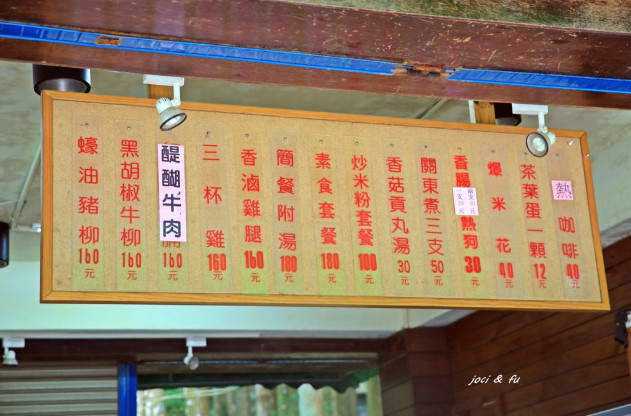 蠔油豬柳160元
黑胡椒牛柳160元
醍醐牛肉160元
三杯雞160元
香滷雞腿160元
簡餐附湯180元
素食套餐180元
炒米粉套餐100元
香菇貢丸湯30元
關東煮三支50元
香腸熱狗30元
爆米花40元
茶葉蛋一顆12元
熱咖啡40元
joci & fu